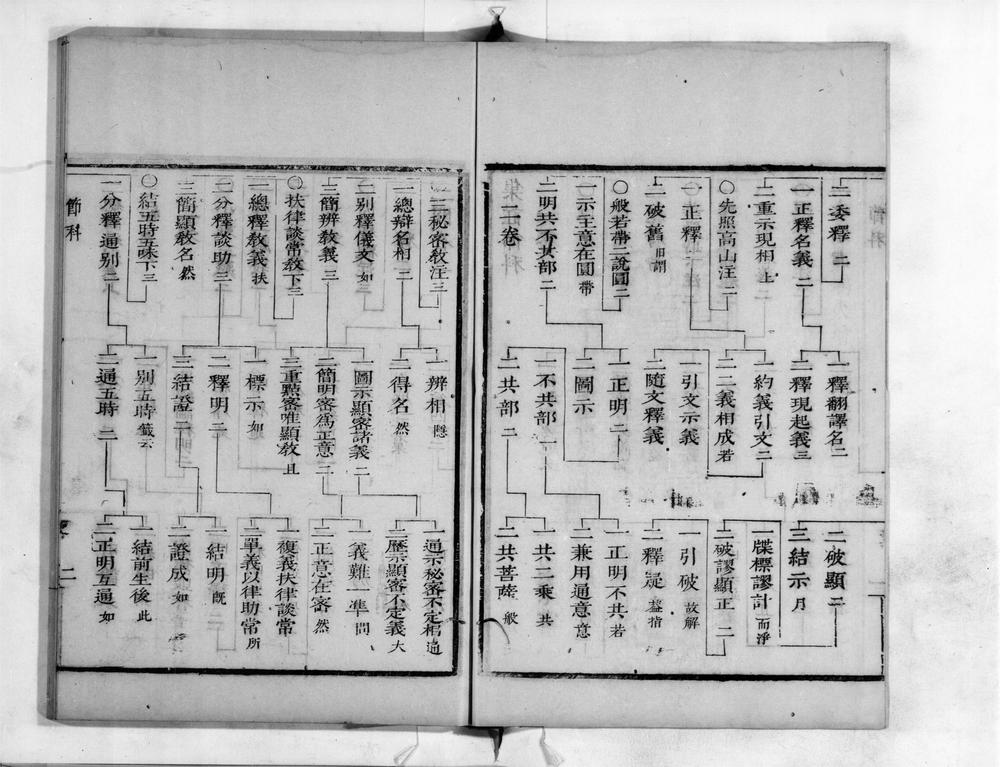 二委釋 二
一正釋名義 二
二重示現相 上
○先照高山注 二
一正釋
二破舊 旧謂
○般若帶二說圓 二
一示主意在圓 帶
二明共不共部 二
二卷
一釋翻譯名 二
二釋現起義 三
一約義引文 二
二二義相成 若
一引文示義
二隨文釋義
一正明 二
二圖示
一不共部 一
二共部 二
二破顯 二
三結示 月
一牒標謬計 而淨
二破謬顯正 二
一引破 故解
二釋疑 益指
一正明不共 若
二兼用通意 意
一共二乘 共
二共菩薩 般
二秘密教注 三
一總辯名相 二
二別釋儀文 如
三簡辨教義 三
○扶律談常教下 三
一總釋教義 扶
二分釋談助 三
三簡顯教名 然
○結五時五味下 三
一分釋通別 二
節科
一辨相 隱
二得名 然
一圖示顯密諸義 二
二簡明密為正意 二
三重點密唯顯教 且
一標示 如
二釋明 二
三結證 二
一別五時 籤云
二通五時 二
一通示秘密不定相 通
二歷示顯密不定義 大
一義難一準 問
二正意在密 然
一複義扶律談常
二單義以律助常 所
一結明 既
二證成 如
一結前生後 此
二正明互通 如
二